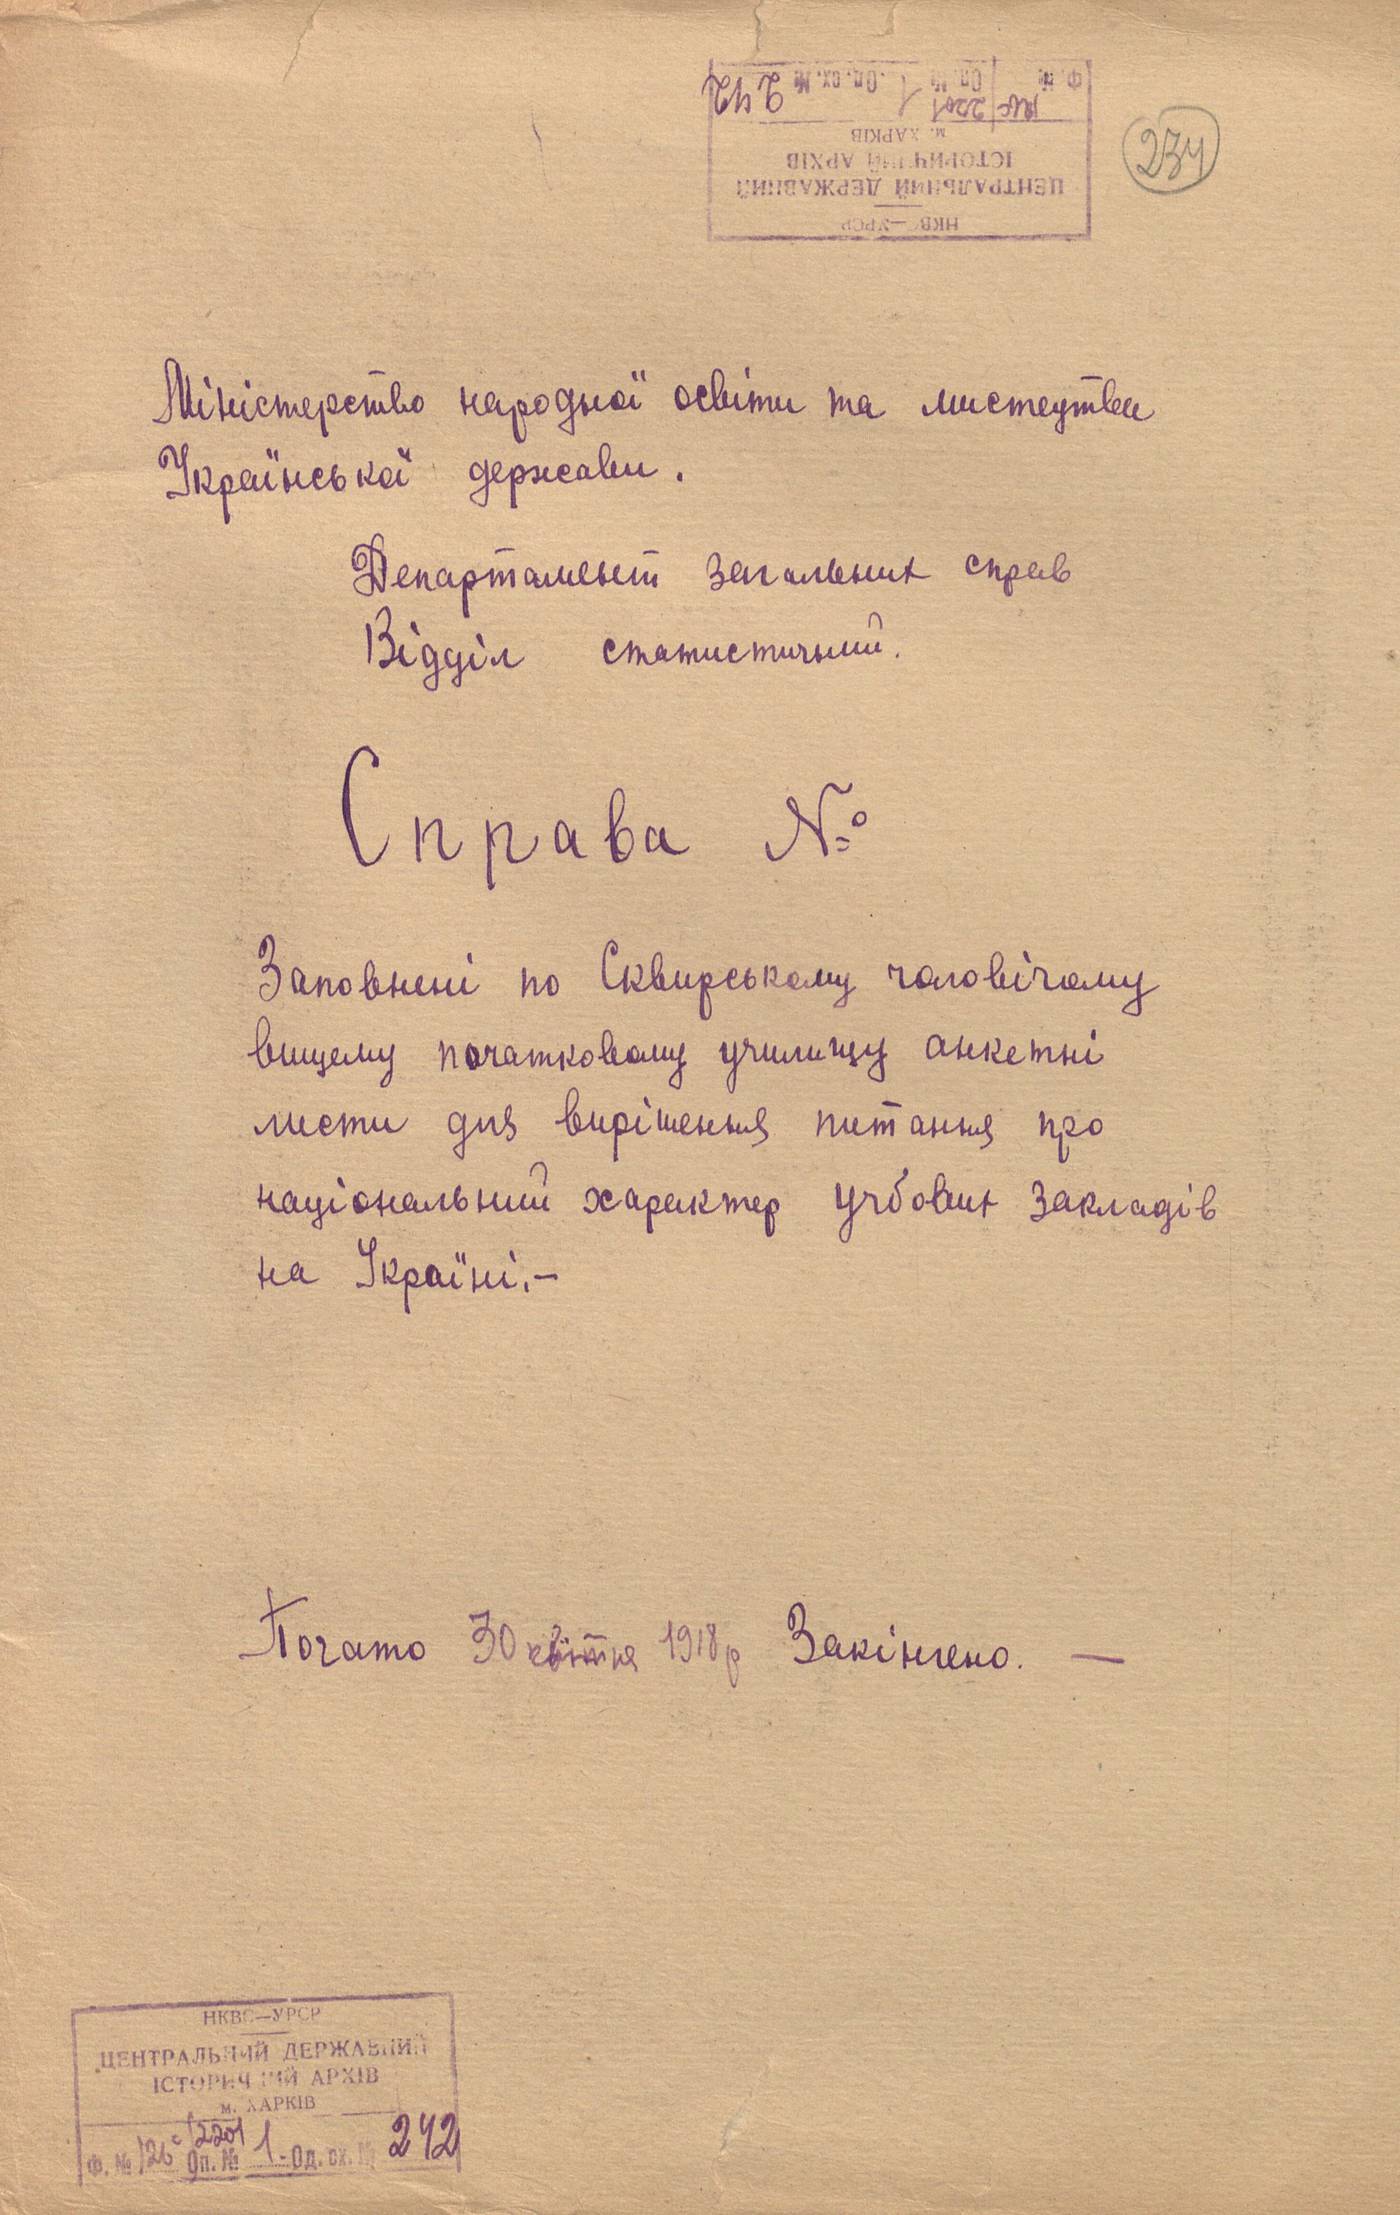 НКВС—УРСР
ЦЕНТРАЛЬНИЙ ДЕРЖАВНИЙ
ІСТОРИЧНИЙ АРХІВ
м. ХАРКІВ
Ф. № 2201 Оп. № 1 Од. сх. № 242
234
Міністерство народньої освіти та мистецтва
Української держави.
Департамент загальних справ
Відділ статистичний.
Справа №
Заповнені по Сквирському чоловічому
вищему початковому училищу анкетні
листи для вирішення питання про
національний характер учбових закладів
на Україні.—
Почато 30 квітня 1918 р Закінчено. —
НКВС—УРСР
ЦЕНТРАЛЬНИЙ ДЕРЖАВНИЙ
ІСТОРИЧНИЙ АРХІВ
м. ХАРКІВ
Ф. № 126с/2201 Оп. № 1 - Од. сх. № 242